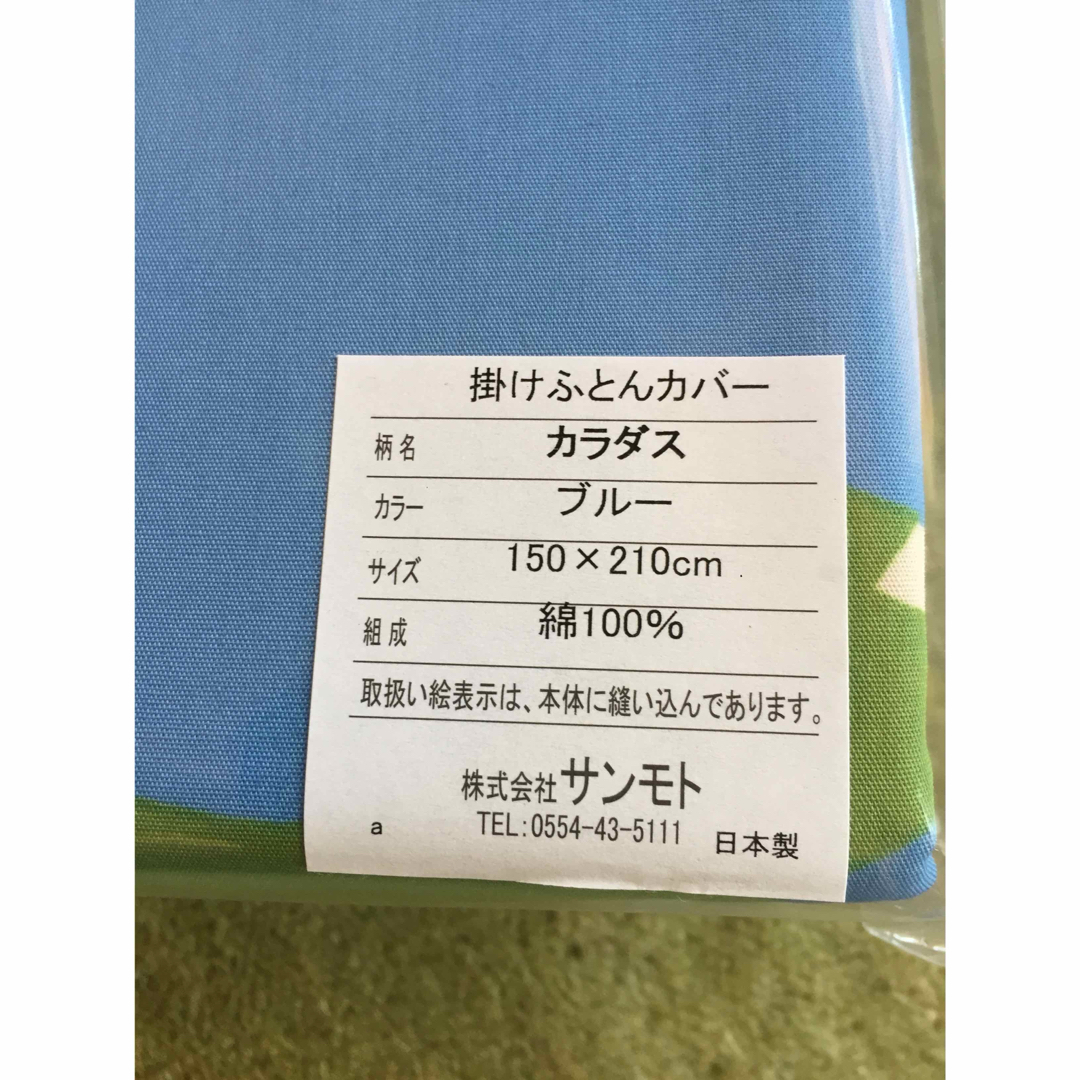 掛けふとんカバー
柄名 カラダス
カラー ブルー
サイズ 150×210cm
組成 綿100%
取扱い絵表示は、本体に縫い込んであります。
株式会社サンモト
a TEL:0554-43-5111 日本製